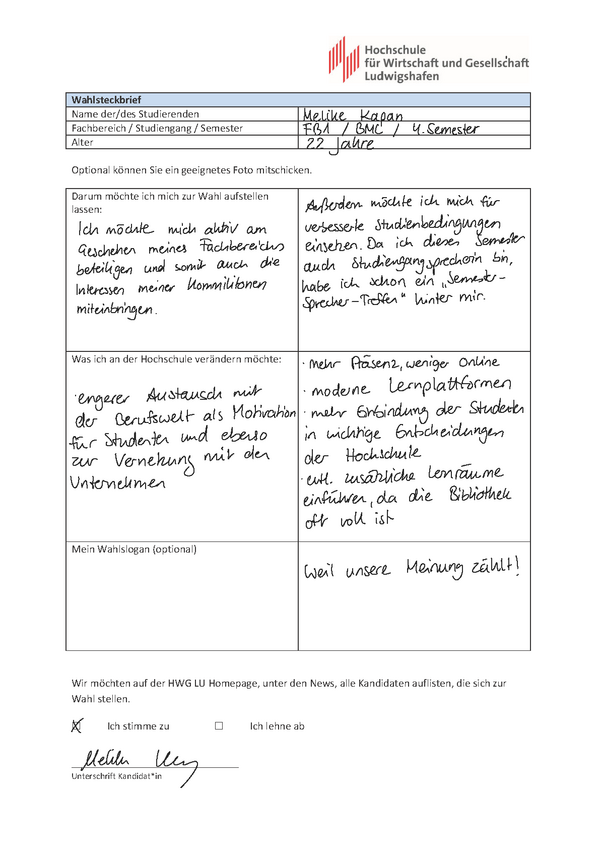 Hochschule
für Wirtschaft und Gesellschaft
Ludwigshafen
Wahlsteckbrief
Name der/des Studierenden
Melike Kapan
Fachbereich / Studiengang / Semester
FB1 / BMC / 4. Semester
Alter
22 Jahre
Optional können Sie ein geeignetes Foto mitschicken.
Darum möchte ich mich zur Wahl aufstellen
lassen:
Ich möchte mich aktiv am
Geschehen meines Fachbereichs
beteiligen und somit auch die
Interessen meiner Kommilitonen
miteinbringen.
Außerdem möchte ich mich für
verbesserte Studienbedingungen
einsetzen. Da ich dieses Semester
auch Studiengangsprecherin bin,
habe ich schon ein „Semester-
Sprecher-Treffen" hinter mir.
Was ich an der Hochschule verändern möchte:
· engerer Austausch mit
der Berufswelt als Motivation
für Studenten und ebenso
zur Vernetzung mit den
Unternehmen
· mehr Präsenz, weniger Online
· moderne Lernplattformen
· mehr Einbindung der Studenten
in wichtige Entscheidungen
der Hochschule
· evtl. zusätzliche Lernräume
einführen, da die Bibliothek
oft voll ist
Mein Wahlslogan (optional)
Weil unsere Meinung zählt!
Wir möchten auf der HWG LU Homepage, unter den News, alle Kandidaten auflisten, die sich zur
Wahl stellen.
☒ Ich stimme zu ☐ Ich lehne ab
Unterschrift Kandidat*in